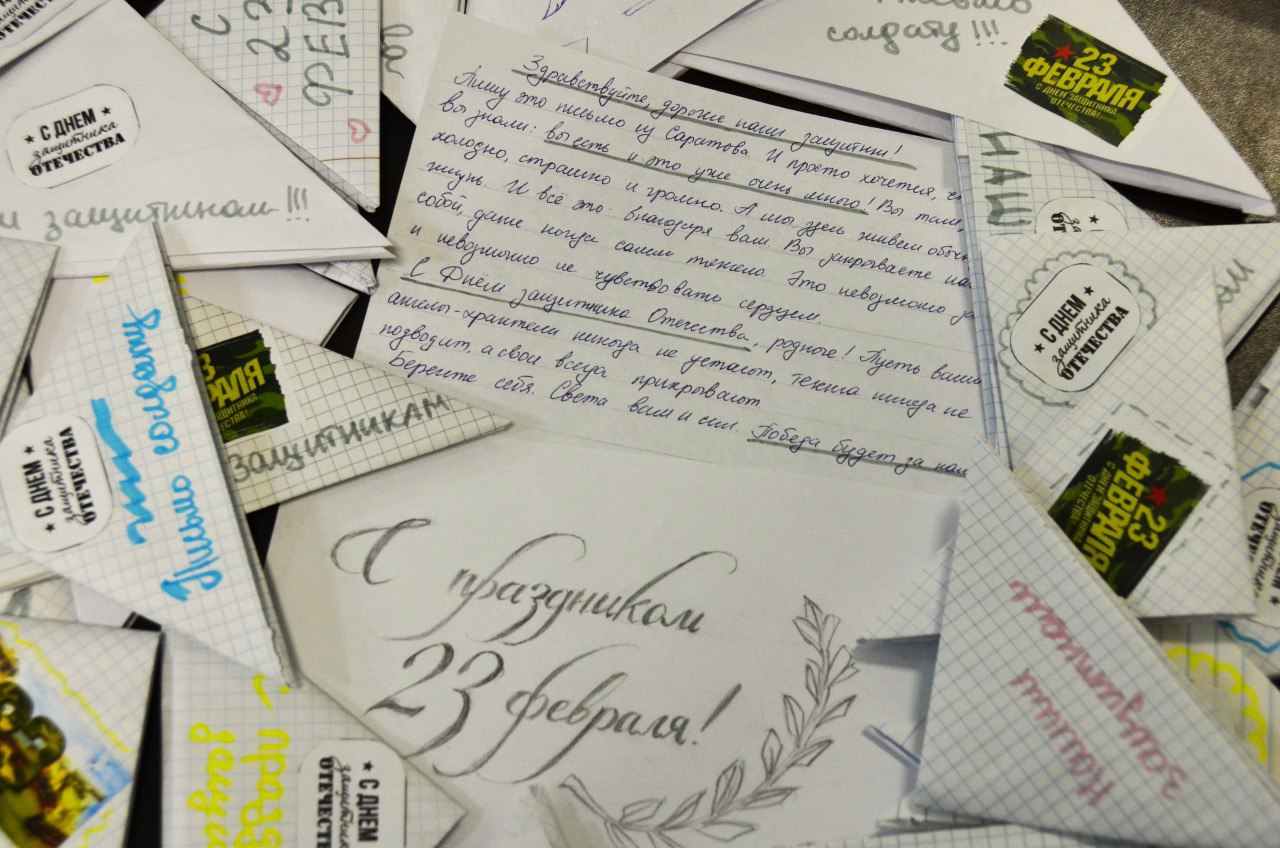 солдату !!!
23
ФЕВРАЛЯ
С ДНЕМ ЗАЩИТНИКА
ОТЕЧЕСТВА!
С
ФЕВ
С ДНЕМ
защитника
ОТЕЧЕСТВА
защитникам !!!
Здравствуйте, дорогие наши защитники!
Пишу это письмо из Саратова. И просто хочется,
вы знали: вы есть и это уже очень много! Вы там,
холодно, страшно и громко. А мы здесь живём
жизнь. И всё это благодаря вам. Вы закрываете
собой, даже когда самим тяжело. Это невозможно
и невозможно не чувствовать сердцем.
С Днём защитника Отечества, родные! Пусть ваши
ангелы-хранители никогда не устают, техника никогда не
подводит, а свои всегда прикрывают.
Берегите себя. Света вам и сил. Победа будет за
НАШ
С ДНЕМ
защитника
ОТЕЧЕСТВА
23
ФЕВРАЛЯ
С ДНЕМ ЗАЩИТНИКА
ОТЕЧЕСТВА!
ФЕВРАЛЯ
ЗАЩИТНИКАМ
Письмо солдату
С ДНЕМ
защитника
ОТЕЧЕСТВА
С праздником
23 февраля!
Нашим
защитникам
С ДНЕМ
защитника